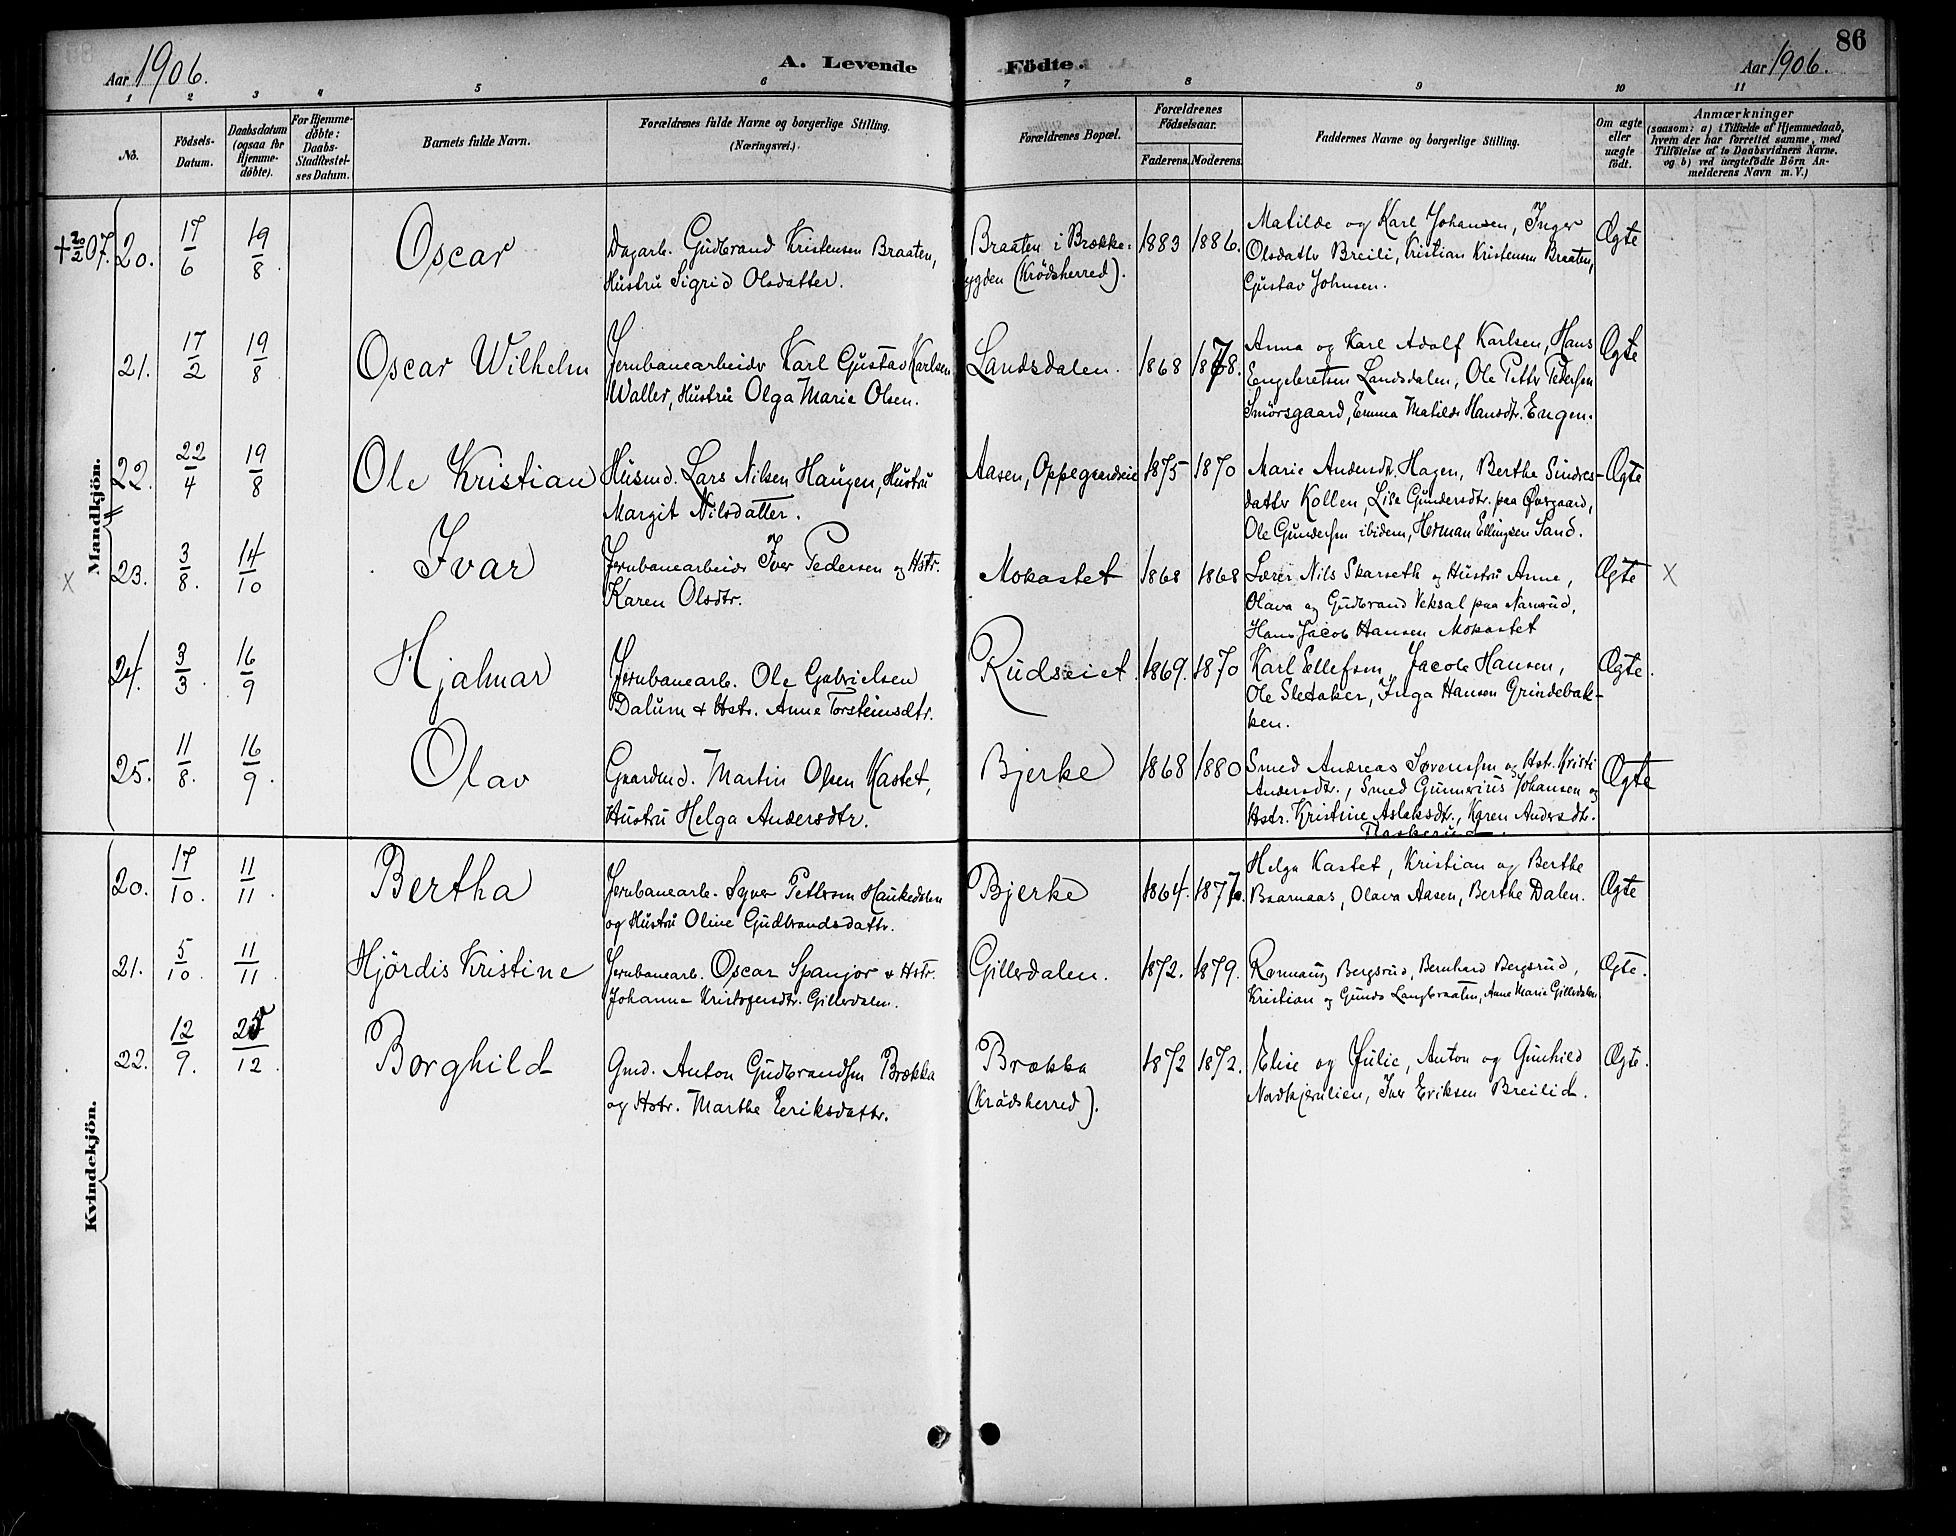 86
Aar 1906.
A. Levende Födte.
Aar 1906.
1 2 3 4 5 6 7 8 9 10 11
No.
Födsels-Datum.
Daabsdatum (ogsaa for Hjemme-döbte).
For Hjemme-döbte: Daabs-Stadfæstel-ses Datum.
Barnets fulde Navn.
Forældrenes fulde Navne og borgerlige Stilling.
(Næringsvei.)
Forældrenes Bopæl.
Forældrenes Födselsaar.
Faderens. Moderens.
Faddernes Navne og borgerlige Stilling.
Om ægte eller uægte födt.
Anmærkninger
(saasom: a) i Tilfælde af Hjemmedaab,
hvem der har forrettet samme, med
Tilföielse af to Daabsvidners Navne.
og b) ved uægtefödte Börn An-
melderens Navn m. V.)
Mandkjön.
+20/2 07. 20. 17/6 19/8 Oscar
Dagarb. Gudbrand Kristensen Braaten,
Hustru Sigrid Olsdatter.
Braaten i Brække-
ygden (Krödsherred).
1883 1886.
Matilde og Karl Johansen, Inger
Olsdattr Breili, Kristian Kristensen Braaten,
Gustav Johnsen.
Ægte
21. 17/2 19/8 Oscar Wilhelm
Jernbanearbeider Karl Gustav Karlsen
Waller, Hustru Olga Marie Olsen.
Landsdalen. 1868 1878.
Anna og Karl Adolf Karlsen, Hans
Engebretsen Landsdalen, Ole Petter Pedersen
Smörsgaard, Emma Matilde Hansdtr. Engen.
Ægte
22. 22/4 19/8 Ole Kristian
Husmd. Lars Nilsen Haugen, Hustru
Margit Nilsdatter.
Aasen, Oppegaardseie 1875 1870
Marie Andersdtr. Hagen, Berthe Sindres-
dattr Kollen, Lise Gundersdtr. paa Övrgaard,
Ole Gundersen ibidem, Herman Ellingsen Sand.
Ægte
x 23. 3/8. 14/10 Ivar
Jernbanearbeidr Iver Pedersen og Hstr.
Karen Olsdtr.
Mokastet 1868 1868
Lærer Nils Skarseth og Hustru Anne,
Olava og Gudbrand Veksal paa Narverud,
Hans Jacob Hansen Mokastet
Ægte x
24. 3/3. 16/9 Hjalmar
Jernbanearb. Ole Gabrielsen
Dalum & Hstr. Anne Torsteinsdtr.
Rudseiet. 1869. 1870
Karl Ellefsen, Jacob Hansen,
Ole Sletaker, Inga Hansen Grindebak-
ken.
Ægte.
25. 11/8. 16/9. Olav
Gaardmd. Martin Olsen Kastet,
Hustru Helga Andersdtr.
Bjerke 1868 1880
Smed Andreas Sörensen og Hstr. Kristi
Andersdtr., Smed Gunnerius Johansen og
Hstr. Kristine Aslaksdtr., Karen Andersdtr.
Ægte
Kvindekjön.
20. 17/10. 11/11. Bertha
Jernbanearb. Syver Pettersen Haukedalen
og Hustru Oline Gudbrandsdattr.
Bjerke 1864.
Helga Kastet, Kristian og Berthe
Baarnaas, Olava Aasen, Berthe Dalen.
Ægte
21. 5/10. 11/11. Hjördis Kristine
Jernbanearb. Oscar Spanjor & Hstr.
Johanna Kristofersdtr. Gillerdalen.
Gillerdalen. 1872. 1879.
Rannaug Bergsrud, Bernhard Bergsrud,
Kristian og Gunda Langbraaten, Anne Marie Gillerdalen
Ægte.
22. 12/9. 25/12. Borghild
Gmd. Anton Gudbrandsen Brækka
og Hstr. Marthe Eriksdattr.
Brækka
(Krödsherred).
1872 1872.
Elise og Julie, Anton og Gunhild
Nordbjernlien, Iver Eriksen Breilid.
Ægte.